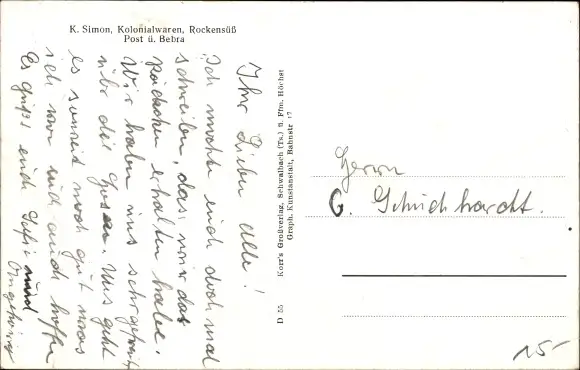 K. Simon, Kolonialwaren, Rockensüß
Post ü. Bebra
Ihr Lieben alle!
Ich möchte euch doch mal
schreiben, das wir das
päckchen erhalten habe.
Wir haben uns sehr gefreut
über die Uns geht
es soweit noch gut was
ich von euch auch hoffe
Es grüßt euch und
Angehörige
D 55 Korr's Großverlag, Schwalbach (Ts.) ü. Ffm. Höchst
Graph. Kunstanstalt, Bahnstr 17
Herrn
G. Schuchhardt.
15-